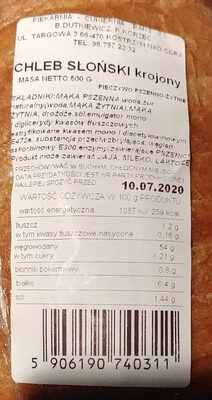 PIEKARNIA - CUKIERNIA
B.DUTKIEWICZ R.KORZEC
UL. TARGOWA 3 66-470 KOSTRZYN NAD ODRĄ
TEL. 95 757 22 32
CHLEB SŁOŃSKI krojony
MASA NETTO 500 G
PIECZYWO PSZENNO-ŻYTNIE
SKŁADNIKI:MĄKA PSZENNA,woda,żur
naturalny(woda,MĄKA ŻYTNIA),MĄKA
ŻYTNIA, drożdże,sól,emulgator mono
i diglicerydy kwasów tłuszczowych
estryfikowane kwasem mono i diacetylowinowym
E472e, substancja przeciwutleniająca, kwas
askorbinowy E300,enzymy(zawierające PSZENICĘ)
Produkt może zawierać JAJA, MLEKO,
PRZECHOWYWAĆ W SUCHYM I CHŁODNYM MIEJSCU
DATA PRZYDATNOŚCI JEST NR PARTII PRODUKCYJNEJ
NAJLEPIEJ SPOŻYĆ PRZED 10.07.2020
WARTOŚĆ ODŻYWCZA W 100 g PRODUKTU
wartość energetyczna 1097 kJ/ 259 kcal
tłuszcz 1,2 g
w tym kwasy tłuszczowe nasycone 0,16 g
węglowodany 54 g
w tym cukry 1,21 g
błonnik pokarmowy 0,8 g
białko 6,4 g
sól 1,44 g
5 906190 740311